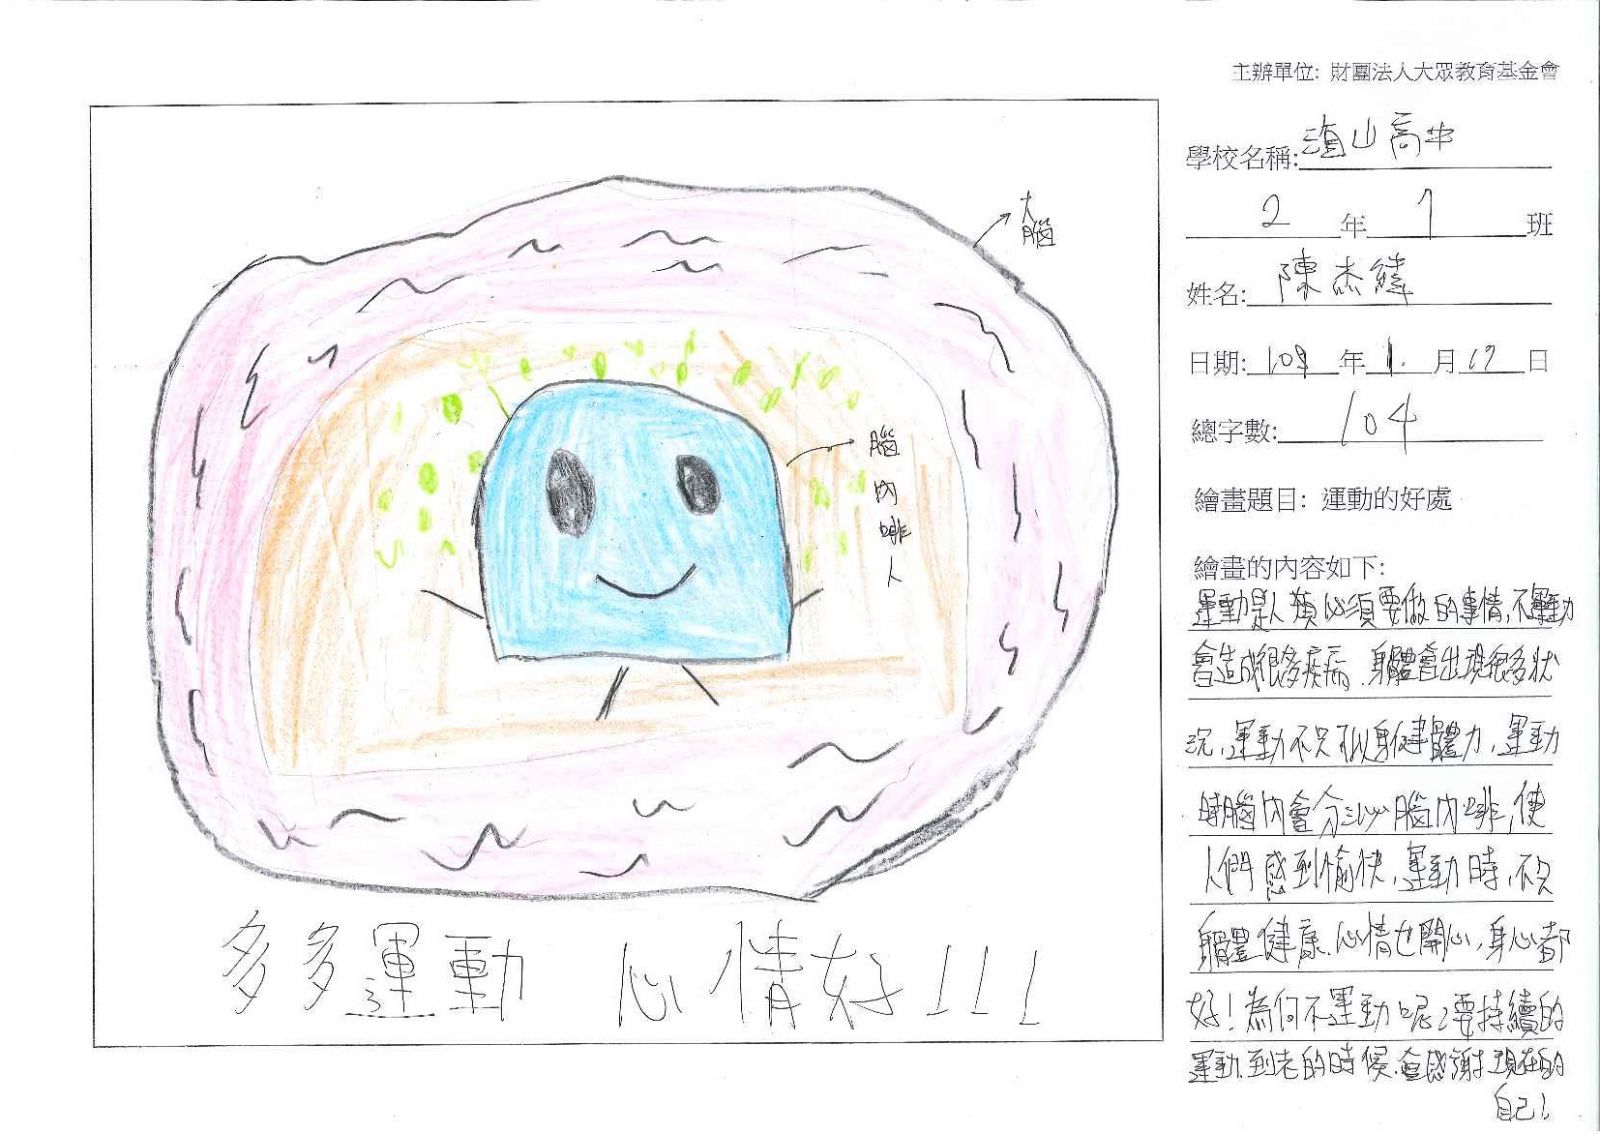 主辦單位: 財團法人大眾教育基金會
學校名稱: 山高中
2 年 7 班
姓名: 陳杰緯
日期: 108 年 1. 月 17 日
總字數: 104
繪畫題目: 運動的好處
繪畫的內容如下:
運動是人類必須要做的事情,不運動
會造成很多疾病.身體會出現很多狀
況,運動不只可以身健體力,運動
時腦內會分泌腦內啡,使
人們感到愉快,運動時,不只
身體健康.心情也開心,身心都
好!為何不運動呢?要持續的
運動.到老的時候.會感謝現在的
自己!
大腦
腦內啡人
多多運動 心情好!!!